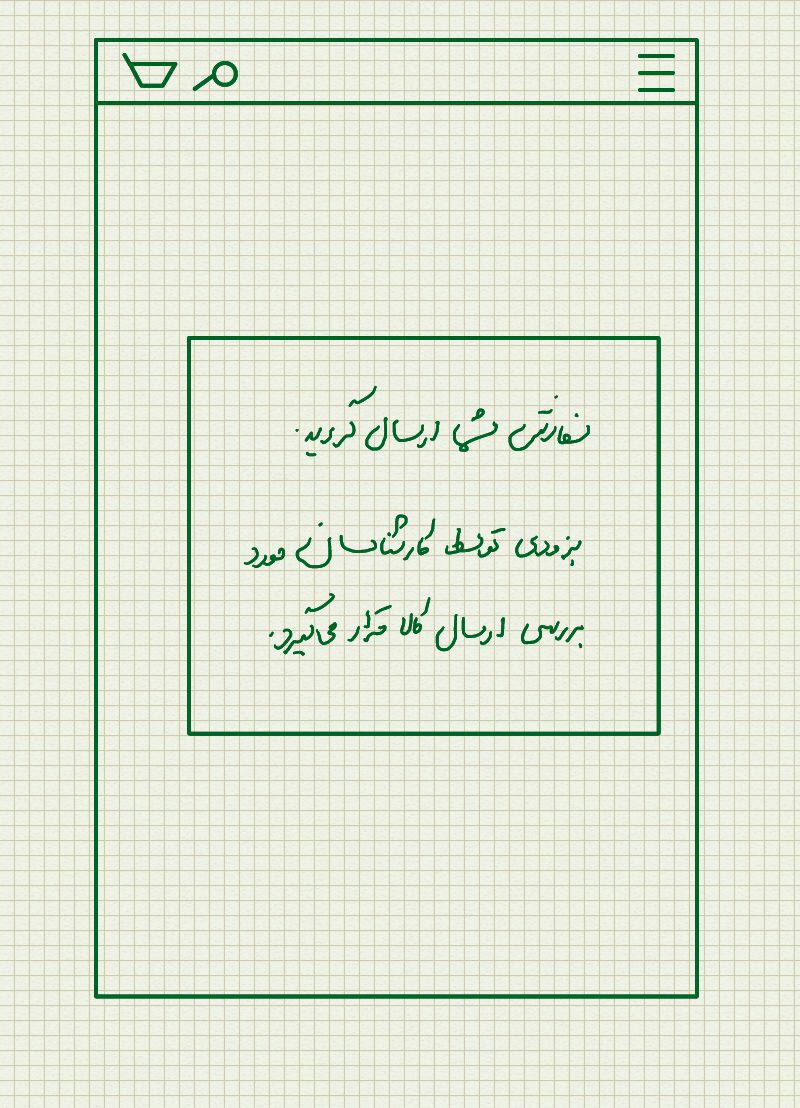 سفارش شما ارسال گردید.
بزودی توسط کارشناسان مورد
بررسی ارسال کالا قرار می‌گیرد.